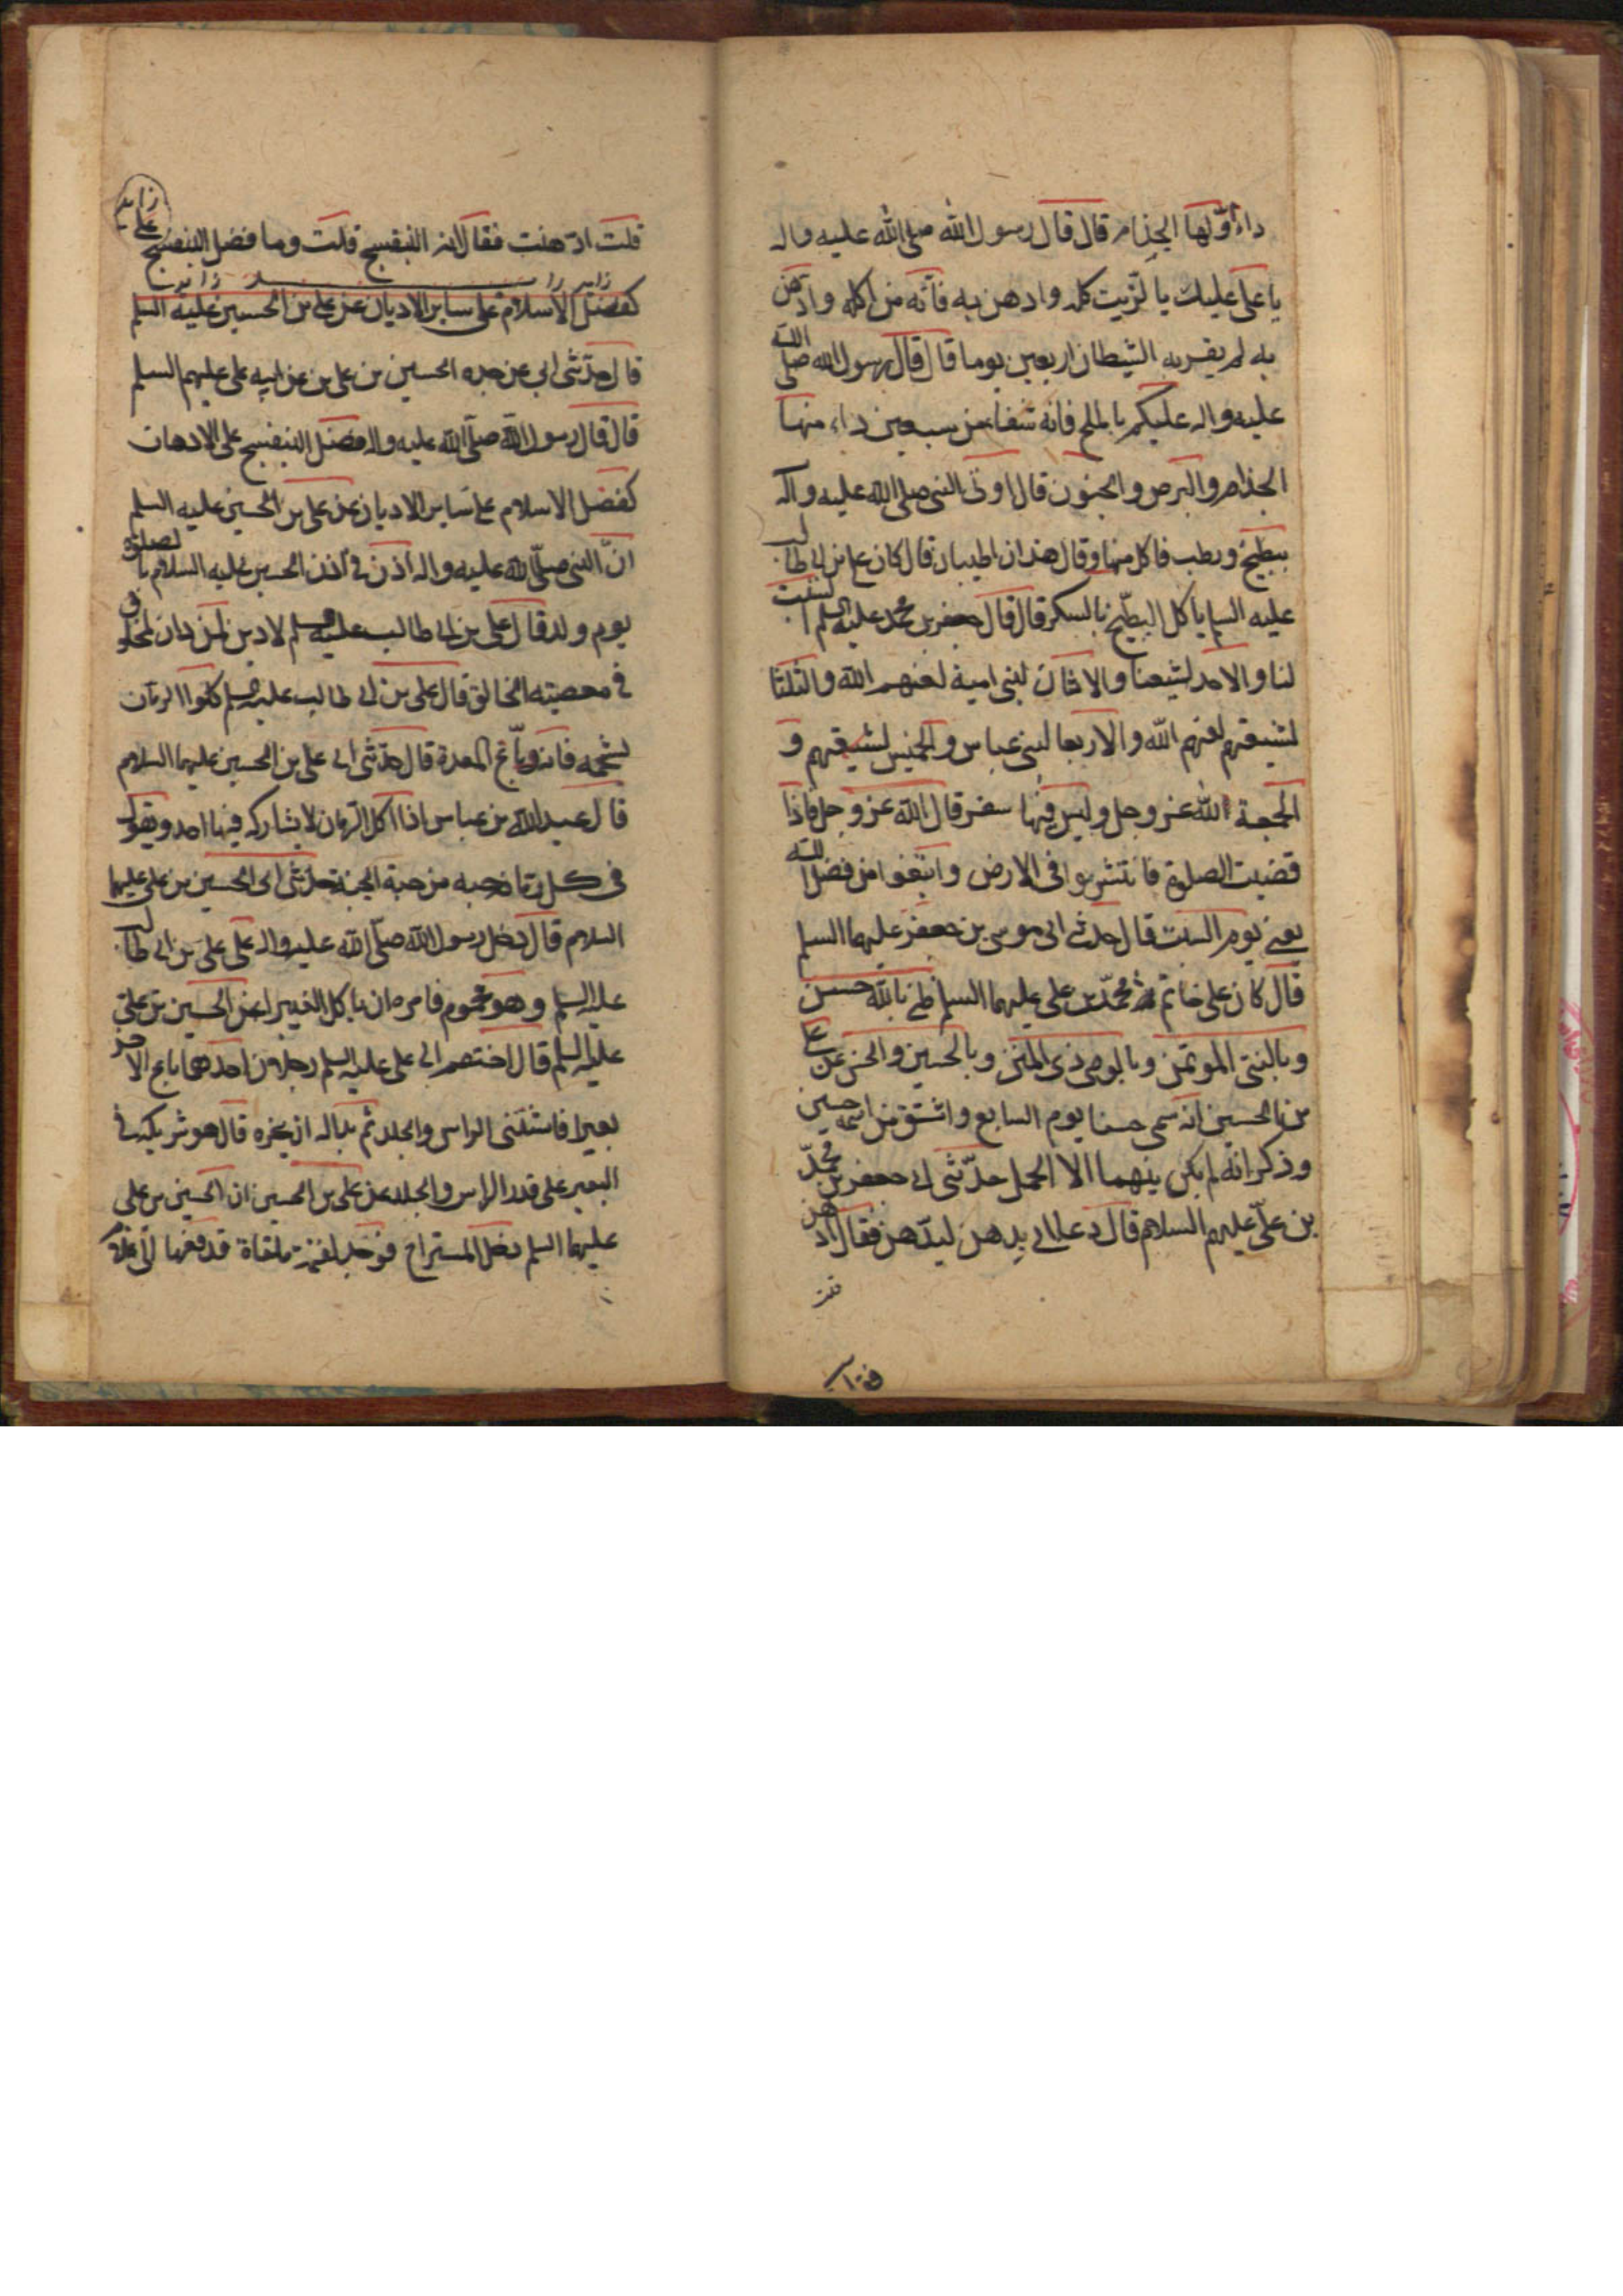 داء اوّلها الجذام قال قال رسول الله صلى الله عليه واله
يا على عليك بالزيت كله وادهن به فانه من اكله وادهن
به لم يقربه الشيطان اربعين يوما قال قال رسول الله صلى الله
عليه واله عليكم بالملح فانه شفاء من سبعين داء منها
الجذام والبرص والجنون قال اوتى النبى صلى الله عليه واله
ببطيخ ورطب فاكل منها وقال هذان اطيبان قال كان على بن ابى طالب
عليه السلم ياكل البطيخ بالسكر قال قال جعفر بن محمد عليه السلم السبت
لنا والاحد لشيعتنا والاثنان لبنى امية لعنهم الله والثلثا
لشيعتهم لعنهم الله والاربعا لبنى عباس والخميس لشيعتهم و
الجمعة لله عز وجل وليس فيها سفر قال الله عز وجل فاذا
قضيت الصلوة فانتشروا فى الارض وابتغوا من فضل الله
يعنى يوم السبت قال حدثنى ابى موسى بن جعفر عليهما السلم
قال كان على خاتم محمّد بن على عليهما السلم ظنى بالله حسن
وبالنبى الموتمن وبالوصى ذى المنن وبالحسين والحسن عن على
بن الحسين انه سمى حسنا يوم السابع واشتق من اسمه حسين
وذكر انه لم يكن بينهما الا الحمل حدّثنى ابى جعفر بن محمّد
بن علىّ عليهم السلام قال دعا ابى بدهن ليدّهن فقال ادّهن
قلت
قلت ادّهنت فقال انه البنفسج قلت وما فضل البنفسج على زايد
كفضل الاسلام على ساير الاديان عن على بن الحسين عليه السلم
قال حدّثنى ابى عن جده الحسين بن على بن عن ابيه على عليهم السلم
قال قال رسول الله صلّى الله عليه واله فضل البنفسج على الادهان
كفضل الاسلام على ساير الاديان عن على بن الحسين عليه السلم
انّ النبى صلّى الله عليه واله اذن فى اذن الحسين عليه السلام بالصلوة
يوم ولد قال على بن ابى طالب عليه السلم لا دين لمن دان لمخلوق
فى معصيته الخالق قال على بن ابى طالب عليه السلم كلوا الرمان
بشحمه فانه دباغ المعدة قال حدّثنى ابى على بن الحسين عليهما السلام
قال عبد الله بن عباس اذا اكل الرمان لا يشاركه فيها احد ويقول
فى كل رمانة حبه من حبة الجنة حدثنى ابى الحسين بن على عليهما
السلام قال دخل رسول الله صلّى الله عليه واله على على بن ابى طالب
عليه السلم وهو محموم فامره ان ياكل الغبيرا عن الحسين بن على
عليه السلم قال اختصم الى على عليه السلم رجلان احدهما باع الاخر
بعيرا فاستثنى الراس والجلد ثم بدا له ان ينحره قال هو شريكه فى
البعير على قدر الراس والجلد عن على بن الحسين ان الحسين بن على
عليهما السلم دخل المستراح فوجد لقمة ملقاة فدفعها الى غلام